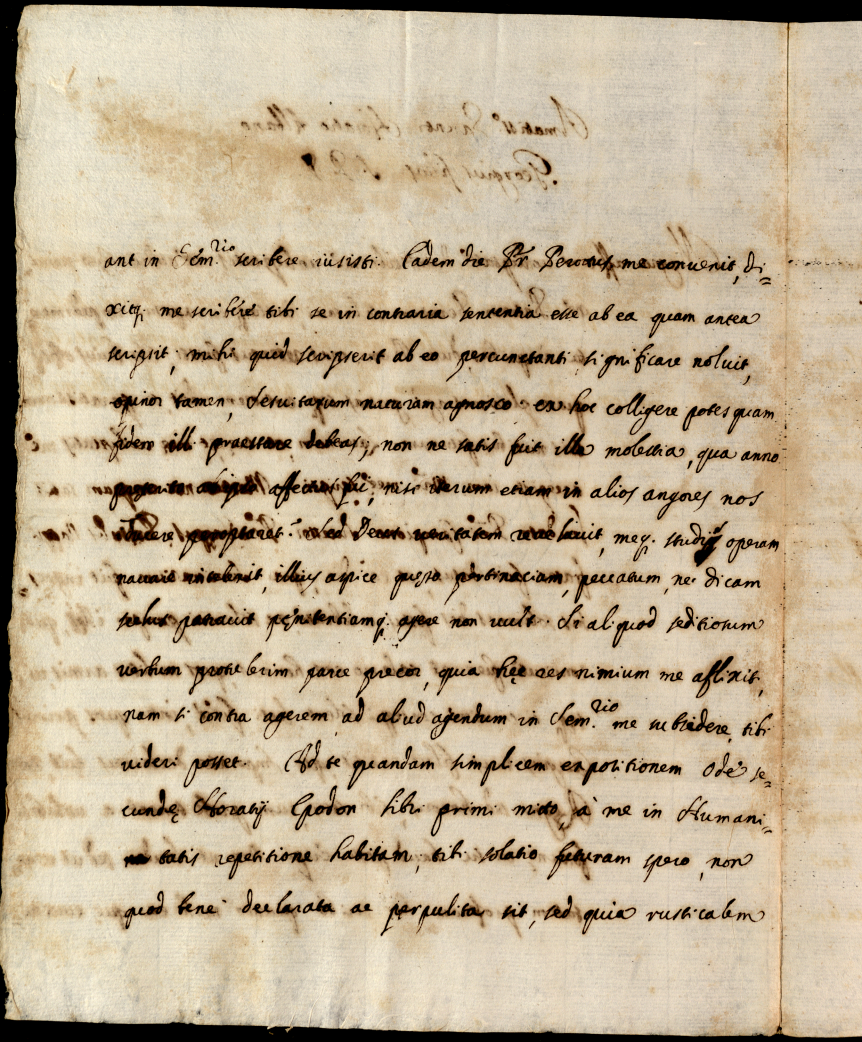 ant in Sem.rio scribere iussisti. Eadem die Pr Perotus me convenit, di=
xitq. me scribere tibi se in contraria sententia esse ab ea quam antea
scripsit; mihi quid scripserit ab eo percunctanti significare noluit,
opinor tamen, Jesuitarum naturam agnosco. ex hoc colligere potes quam
fidem illi praestare debeas; non ne satis fuit illa molestia, qua anno
affectus fui, nisi iterum etiam in alios angores nos
sed Deus veritatem meq. studijs operam
illius aspice quęso pertinaciam, peccatum, ne dicam
scelus patravit pęnitentiamq. agere non vult. Si aliquod seditiosum
verbum protulerim parce precor, quia hęc res nimium me aflixit,
nam si contra agerem, ad aliud agendum in Sem.rio me tibi
videri posset. Ad te quandam simplicem expositionem Odę se=
cundę Horatij Epodon libri primi mitto, à me in Humani=
tatis repetitione habitam; tibi solatio futuram spero, non
quod bene declarata ac perpulita sit, sed quia rusticalem